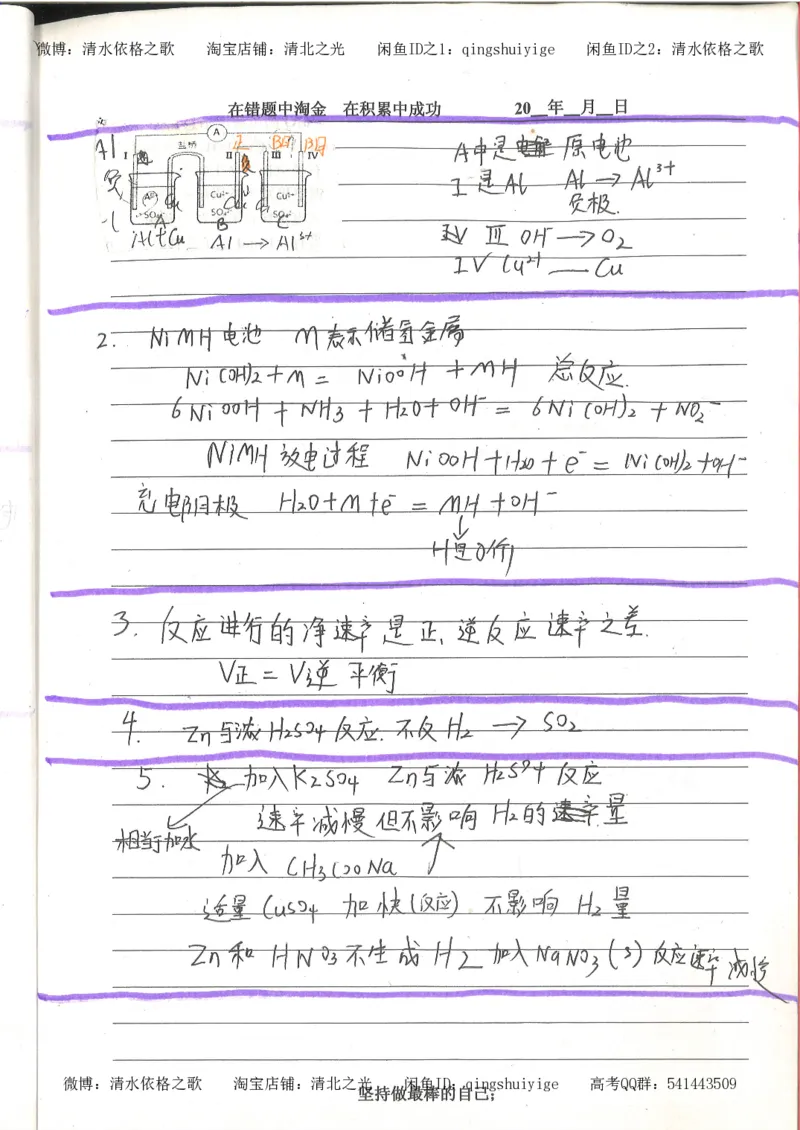 微博：清水依格之歌 淘宝店铺：清北之光 闲鱼ID之1：qingshuiyige 闲鱼ID之2：清水依格之歌
在错题中淘金 在积累中成功 20__年__月__日
A
盐桥
Al I II III IV
阳 阴
负
Al³⁺ Cu²⁺ Cu²⁺
SO₄²⁻ SO₄²⁻ SO₄²⁻
A B C
Al+Cu Al → Al³⁺
A中是 原电池
I 是Al Al → Al³⁺
负极.
III OH⁻ → O₂
IV Cu²⁺ — Cu
2. NiMH电池 M表示储氢金属
Ni(OH)₂+M = NiOOH + MH 总反应.
6NiOOH + NH₃ + H₂O + OH⁻ = 6Ni(OH)₂ + NO₂⁻
NiMH 放电过程 NiOOH+H₂O+e⁻ = Ni(OH)₂+OH⁻
充电阴极 H₂O+M+e⁻ = MH+OH⁻
↓
H是0价
3. 反应进行的净速率是正、逆反应速率之差.
V正 = V逆 平衡
4. Zn与浓H₂SO₄反应. 不反H₂ → SO₂
5. 加入K₂SO₄ Zn与浓H₂SO₄反应
速率减慢但不影响H₂的量
相当于加水
加入 CH₃COONa
适量CuSO₄ 加快(反应) 不影响H₂量
Zn和HNO₃不生成H₂ 加入NaNO₃(s)反应速率减慢
微博：清水依格之歌 淘宝店铺：清北之光 闲鱼ID：qingshuiyige 高考QQ群：541443509
坚持做最棒的自己；